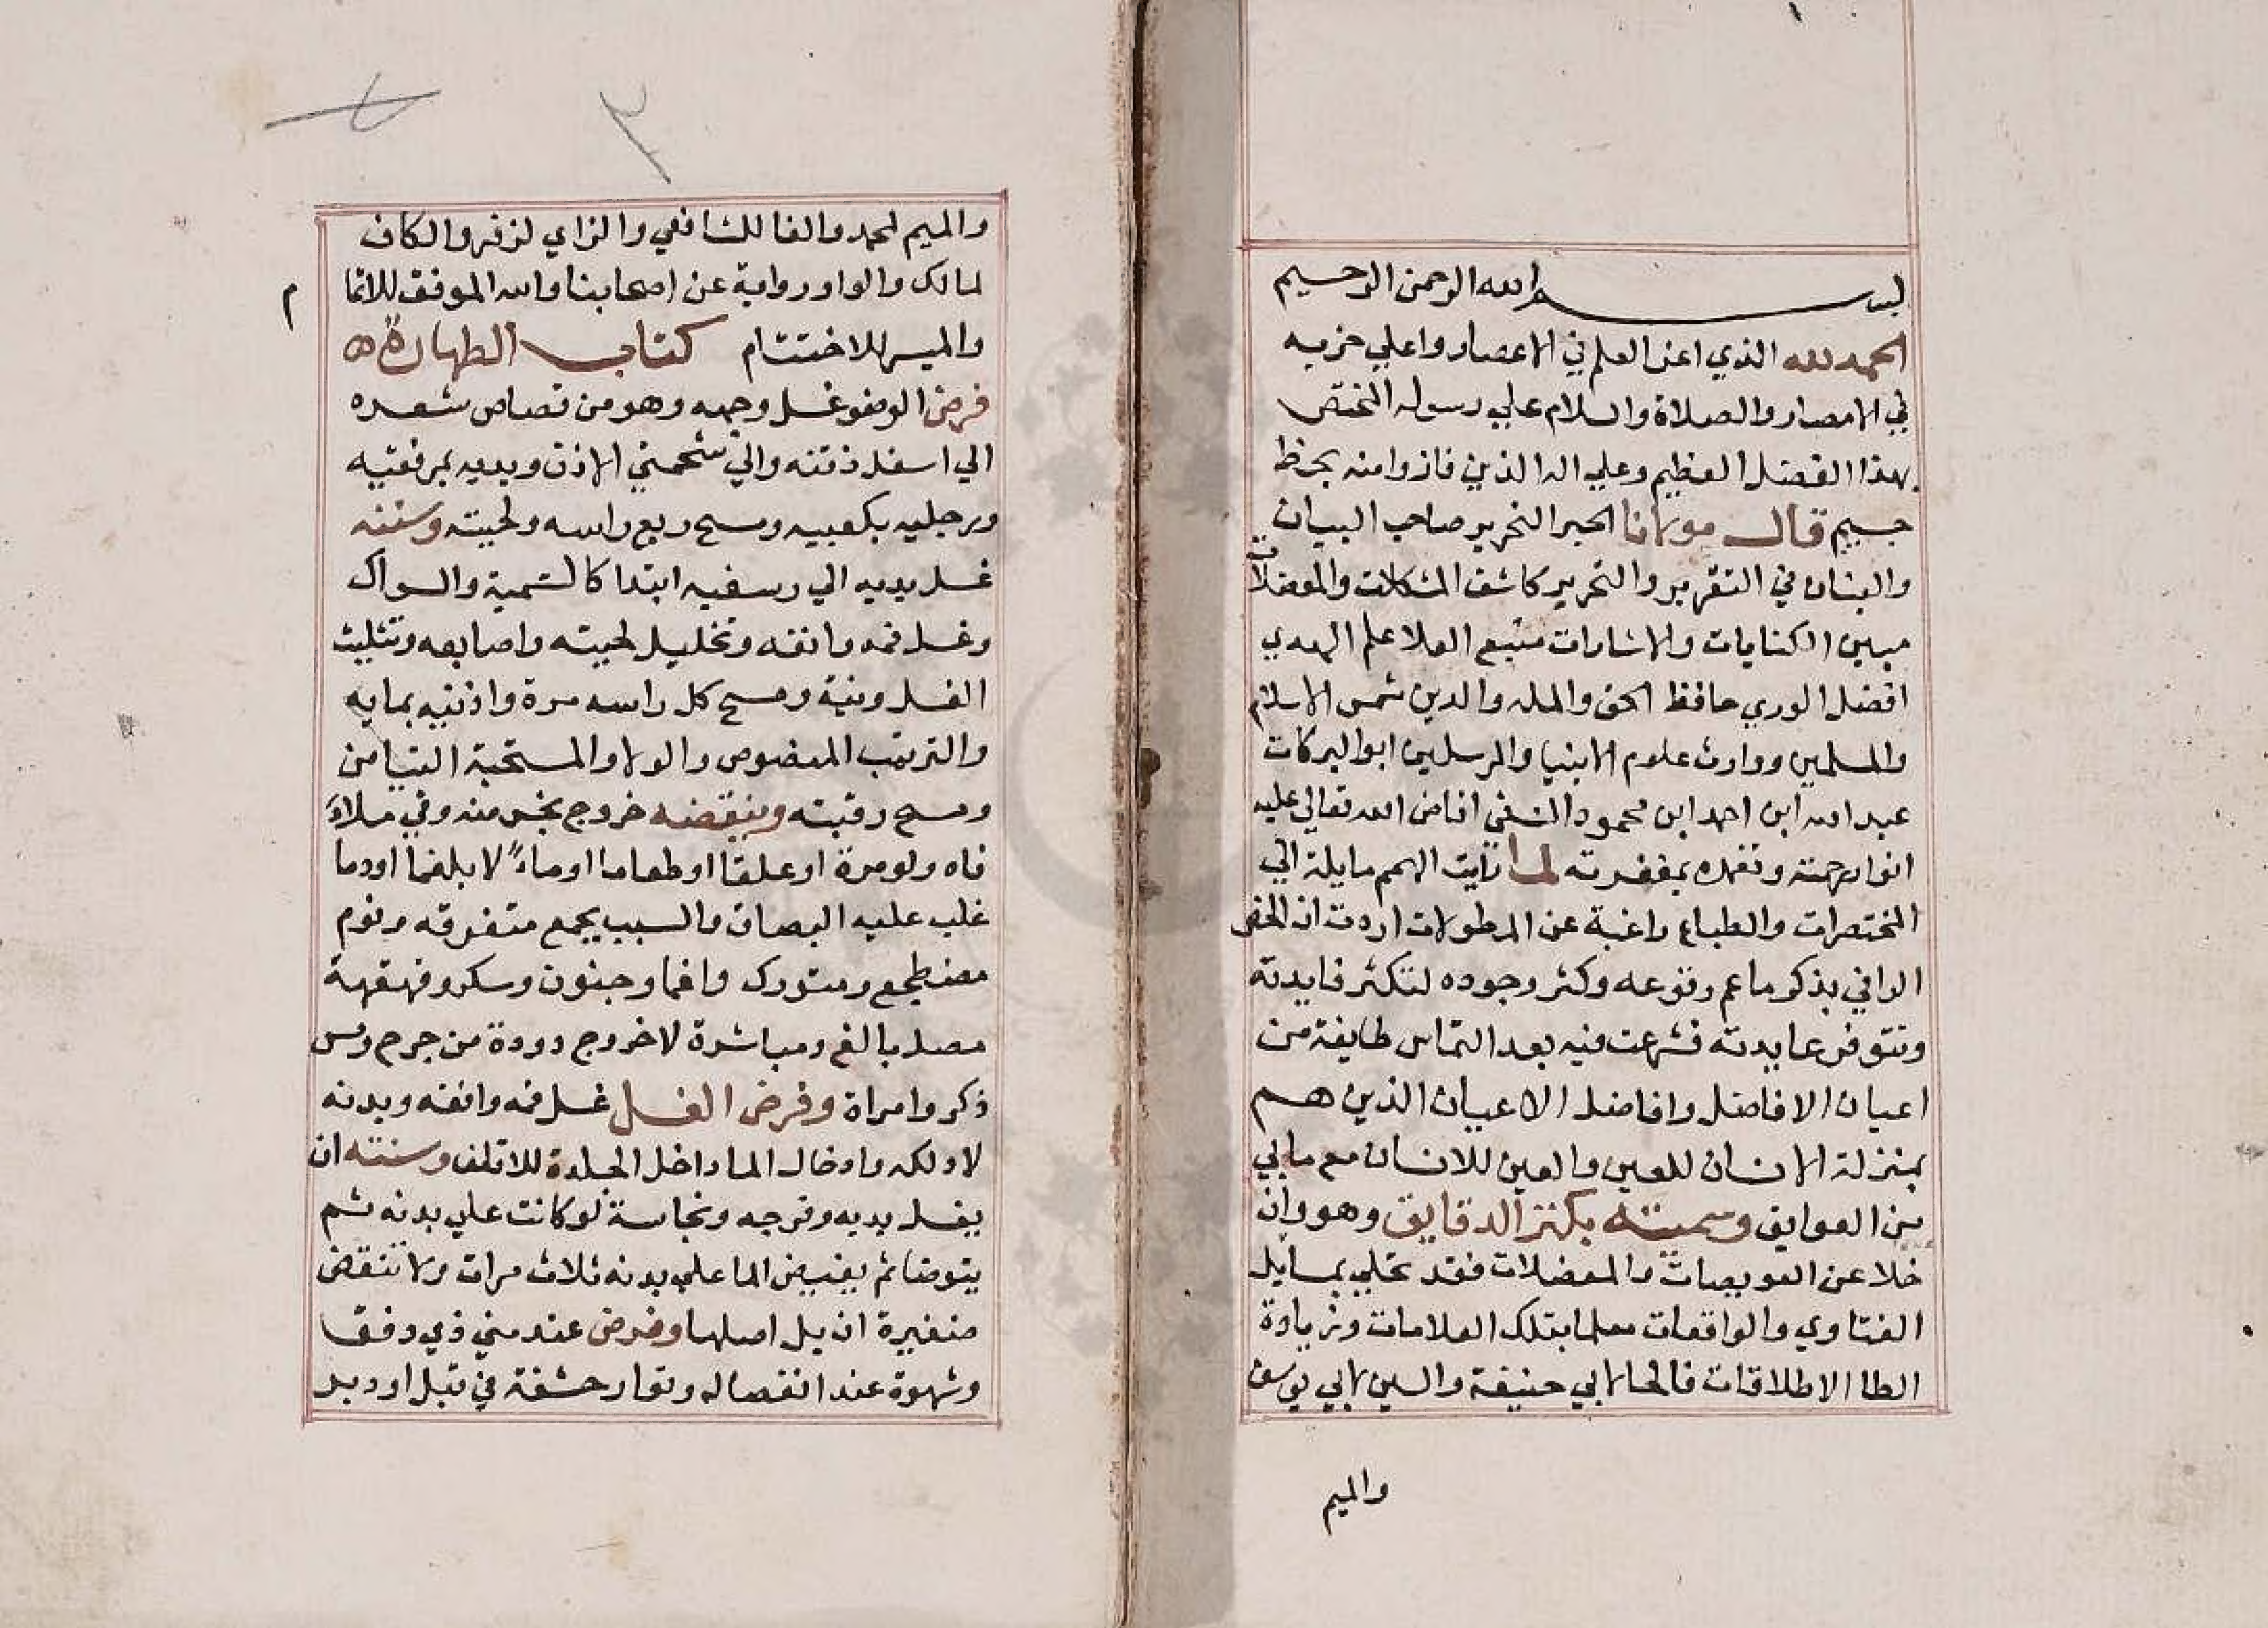 بسم الله الرحمن الرحيم
الحمد لله الذي اعز العلم في الاعصار واعلي حزبه
في الامصار والصلاة والسلام علي رسوله المختص
بهذا الفضل العظيم وعلي اله الذين فازوا منه بحظ
جسيم قال مولانا الحبر النحرير صاحب البيان
والبنان في التقرير والتحرير كاشف المشكلات والمعضلات
مبين الكنايات والاشارات منبع العلا علم الهدي
افضل الوري حافظ الحق والمله والدين شمس الاسلام
والمسلمين ووارث علوم الانبيا والمرسلين ابوا البركات
عبد الله ابن احمد ابن محمود النسفي افاض الله تعالي عليه
انوار رحمته وتغمده بمغفرته لما رايت الهمم مايلة الي
المختصرات والطباع راغبة عن المطولات اردت ان الخص
الوافي بذكر ما عم وقوعه وكثر وجوده لتكثر فايدته
وتتوفر عايدته فشرعت فيه بعد التماس طايفة من
اعيان الافاضل وافاضل الاعيان الذين هم
بمنزلة الانسان للعين والعين للانسان مع ما بي
من العوايق وسميته بكنز الدقايق وهو وان
خلا عن العويصات والمعضلات فقد تحلي بمسايل
الفتاوي والواقعات معلما بتلك العلامات وزيادة
الطا الاطلاقات فالحا لابي حنيفة والسين لابي يوسف
والميم
٣
والميم لمحمد والفا للشافعي والزاي لزفر والكاف
لمالك والواو رواية عن اصحابنا والله الموفق للاتما
م
والميسر للاختتام كتاب الطهارة ه
فرض الوضو غسل وجهه وهو من قصاص شعره
الي اسفل ذقنه والي شحمتي الاذن ويديه بمرفقيه
ورجليه بكعبيه ومسح ربع راسه ولحيته وسننه
غسل يديه الي رسغيه ابتدا كالتسمية والسواك
وغسل فمه وانفه وتخليل لحيته واصابعه وتثليث
الغسل ونية ومسح كل راسه مرة واذنيه بمايه
والترتيب المنصوص والولا والمستحبة التيامن
ومسح رقبته وينقضه خروج نجس منه وقي ملاء
فاه ولو مرة او علقا او طعاما او ماء لا بلغما او دما
غلب عليه البصاق والسبب يجمع متفرقه ونوم
مضطجع ومتورك واغما وجنون وسكر وقهقهة
مصل بالغ ومباشرة لا خروج دودة من جرح ومس
ذكر وامراة وفرض الغسل غسل فمه وانفه وبدنه
لا دلكه وادخال الما داخل الجلدة للاقلف وسنته ان
يغسل يديه وفرجه ونجاسة لو كانت علي بدنه ثم
يتوضا ثم يفيض الما علي بدنه ثلاث مرات ولا تنقض
ضفيرة ان بل اصلها وفرض عند مني ذي دفق
وشهوة عند انفصاله وتوار حشفة في قبل او دبر